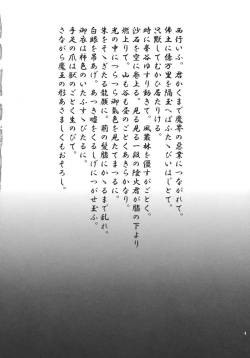 西行いふ、君かくまで魔界の悪業につながれて、
佛土に億万里を隔玉へばふたゝびいはじとて、
只黙してむかひ居たりける。
時に峯谷ゆすり動きて、風叢林を僵すがごとく、
沙石を空に巻上る。見る見る一段の陰火君が膝の下より
燃上りて、山も谷も昼のごとくあきらかなり。
光の中につらつら御気色を見たてまつるに、
朱をそゝぎたる龍顔に、荊の髪膝にかゝるまで乱れ、
白眼を吊あげ、あつき嘘をくるしげにつがせ玉ふ。
御衣は柿色のいたうすゝびたるに、
手足の爪は獣のごとく生のびて、
さながら魔王の形あさましくもおそろし。